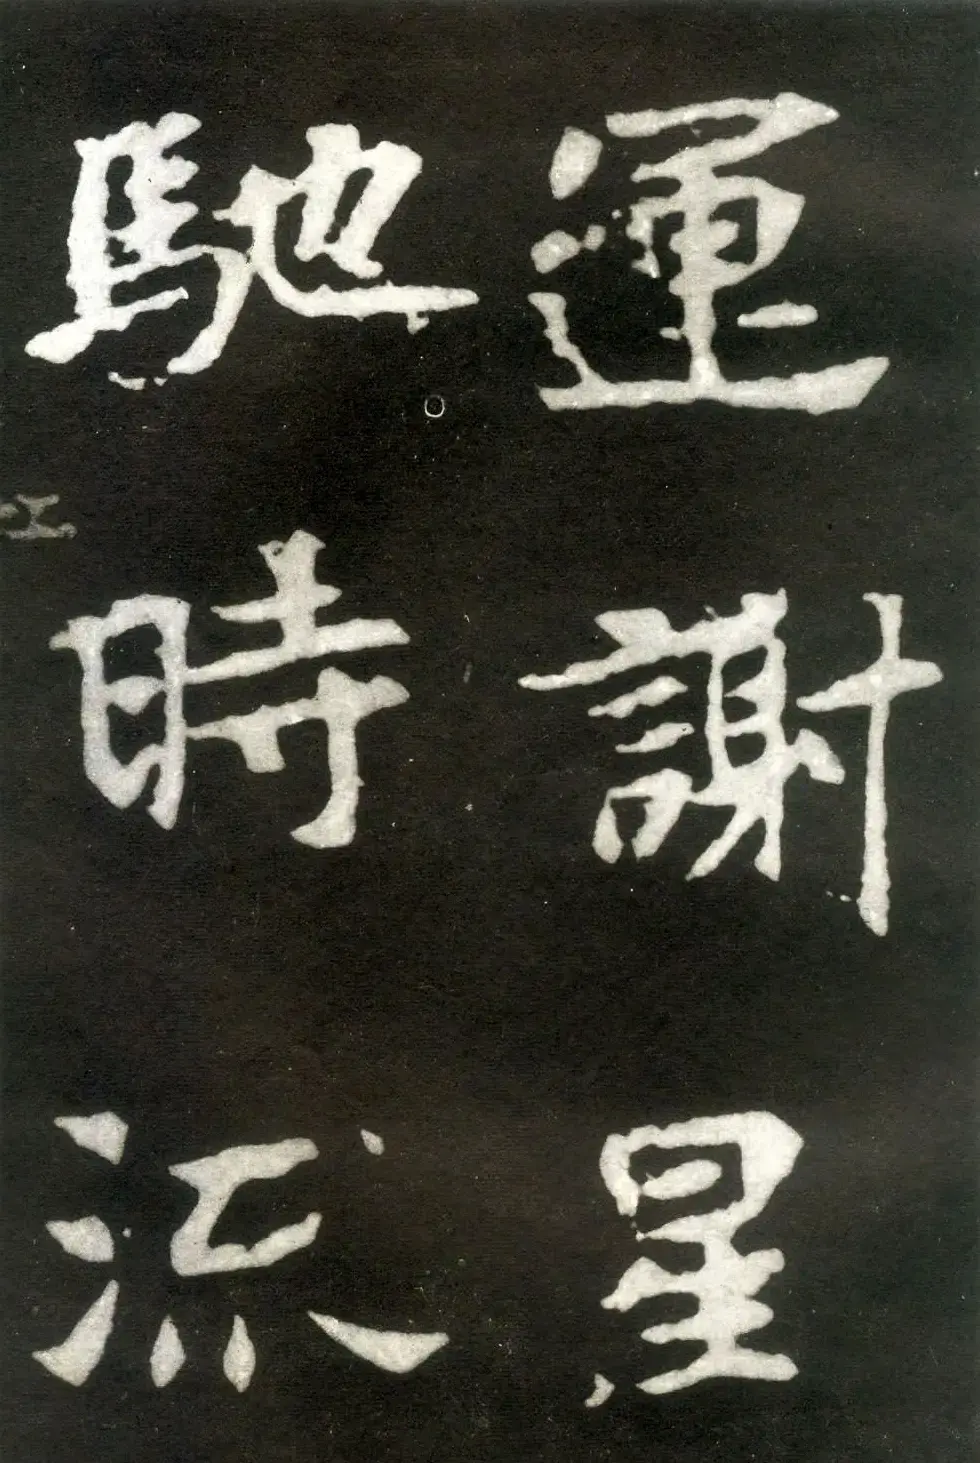 運謝星
馳時流